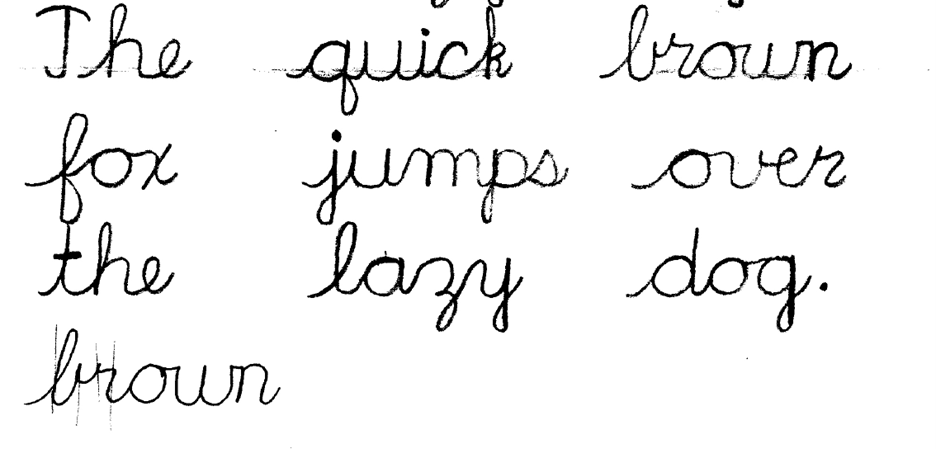 The quick brown
fox jumps over
the lazy dog.
brown